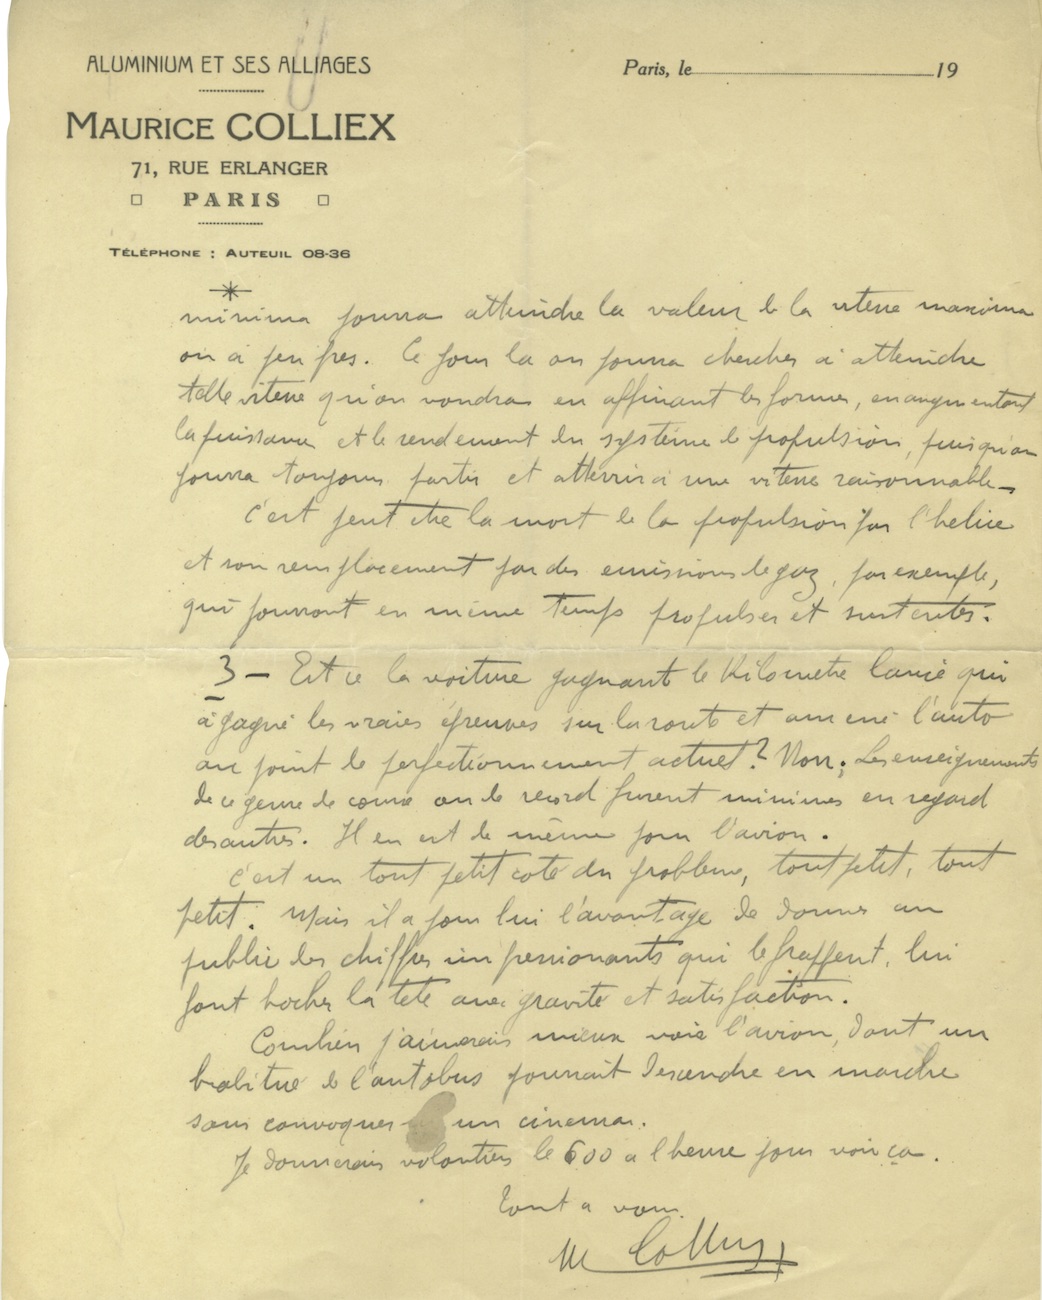 ALUMINIUM ET SES ALLIAGES
Paris, le 19
MAURICE COLLIEX
71, RUE ERLANGER
PARIS
TÉLÉPHONE : AUTEUIL 08-36
minima pourra atteindre la valeur de la vitesse maxima
ou à peu près. Ce jour la on pourra chercher à atteindre
telle vitesse qu'on voudra en affinant les formes, en augmentant
la puissance et le rendement du système de propulsion, puisqu'on
pourra toujours partir et atterrir à une vitesse raisonnable_
C'est peut etre la mort de la propulsion par l'helice
et son remplacement par des emissions de gaz, par exemple,
qui pourront en même temps propulser et sustenter.
3 — Est ce la voiture gagnant le Kilometre lancé qui
a gagné les vraies épreuves sur la route et amené l'auto
au point de perfectionnement actuel? Non; Les enseignements
de ce genre de course ou de record furent minimes en regard
des autres. Il en est de même pour l'avion.
C'est un tout petit coté du problème, tout petit, tout
petit. Mais il a pour lui l'avantage de donner au
public des chiffres impressionants qui le frappent, lui
font hocher la tete avec gravité et satisfaction.
Combien j'aimerais mieux voir l'avion, dont un
habitué de l'autobus pourrait descendre en marche
sans convoquer un cinema.
Je donnerais volontiers le 600 a l'heure pour voir ça.
Tout a vous
M Colliex